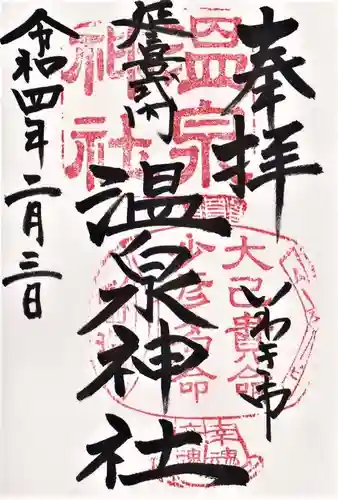 奉拝
いわき市
延喜式内
温泉神社
令和四年二月三日
温泉
神社
大己貴命
少彦名命
幸魂